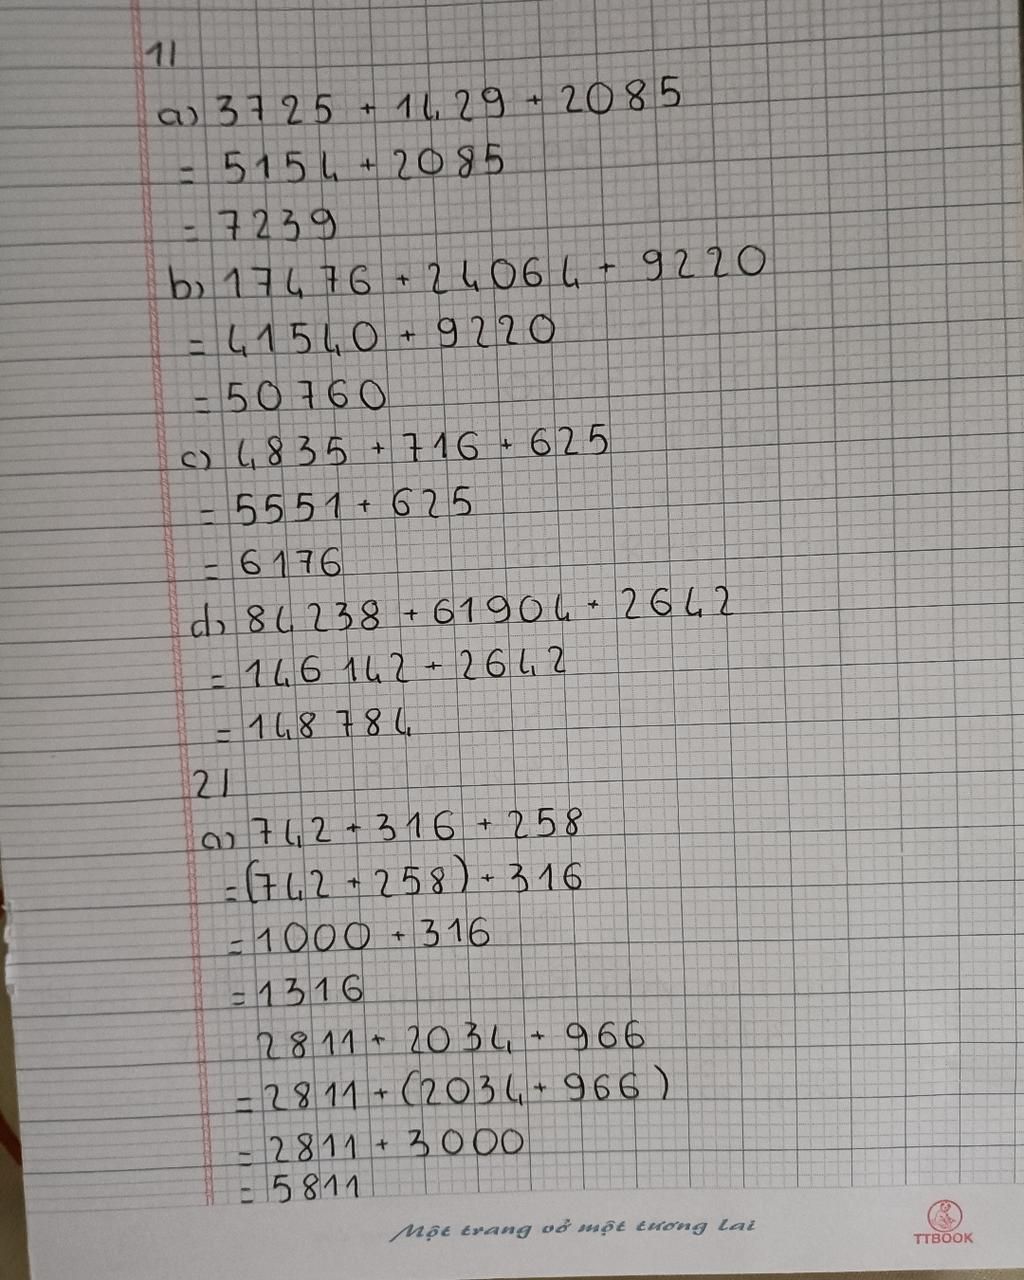 1/
a) 3725 + 1429 + 2085
= 5154 + 2085
= 7239
b) 17476 + 24064 + 9220
= 41540 + 9220
= 50760
c) 4835 + 716 + 625
= 5551 + 625
= 6176
d) 84238 + 61904 + 2642
= 146 142 + 2642
= 148 784
2/
a) 742 + 316 + 258
= (742 + 258) + 316
= 1000 + 316
= 1316
2811 + 2034 + 966
= 2811 + (2034 + 966)
= 2811 + 3000
= 5811
Một trang vở một tương lai
TTBOOK